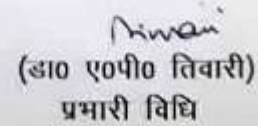 (डा० ए०पी० तिवारी)
प्रभारी विधि